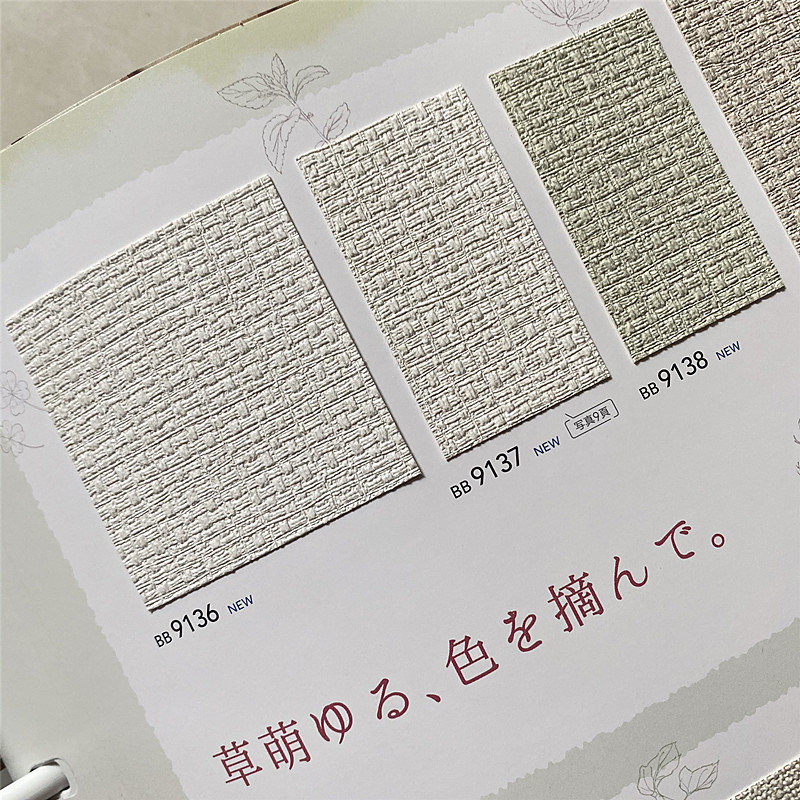 BB9136 NEW
BB9137 NEW 写真9頁
BB9138 NEW
草萌ゆる、色を摘んで。